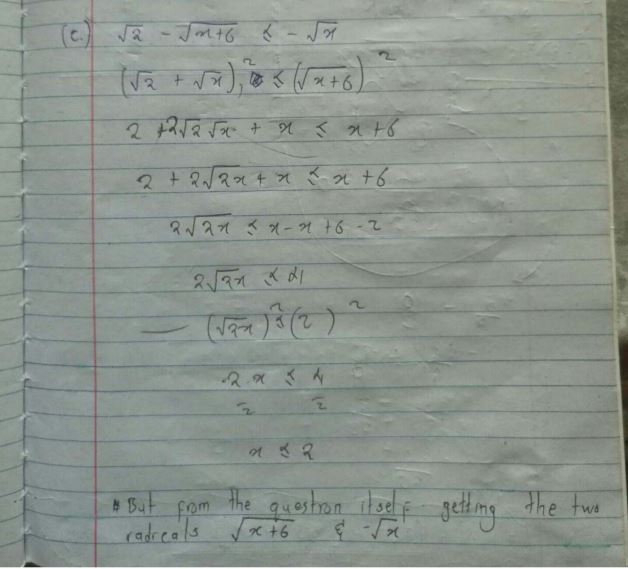 (c.) √2 - √x+6 ≤ - √x
(√2 + √x)², ≤ (√x+6)²
2 + 2√2√x + x ≤ x+6
2 + 2√2x + x ≤ x+6
2√2x ≤ x-x+6-2
2√2x ≤ 4
(√2x)² ≤ (2)²
2x ≤ 4
2 2
x ≤ 2
* But from the question itself getting the two
radicals √x+6 & -√x